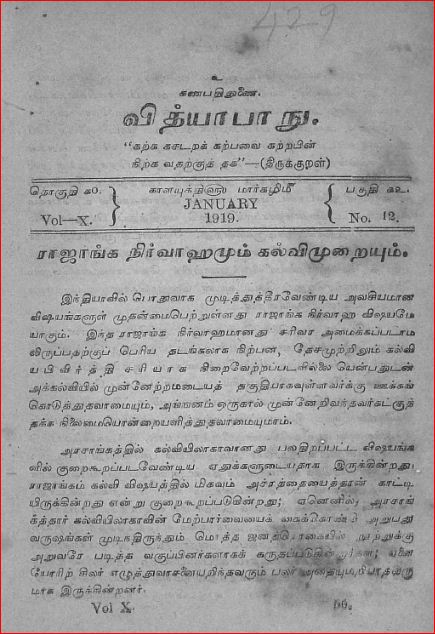 429
உ
கணபதிதுணை.
வித்யாபாநு.
“கற்க கசடறக் கற்பவை கற்றபின்
நிற்க வதற்குத் தக”—(திருக்குறள்)
தொகுதி க௦. காளயுக்தி௵ மார்கழி௴ பகுதி ௧௨.
Vol—X. JANUARY 1919. No. 12.
ராஜாங்க நிர்வாஹமும் கல்விமுறையும்.
இந்தியாவில் பொதுவாக முடித்துத்தீரவேண்டிய அவசியமான
விஷயங்களுள் முதன்மைபெற்றுள்ளது ராஜாங்க நிர்வாஹ விஷயமே
யாகும். இந்த ராஜாங்க நிர்வாஹமானது சரிவர அமைக்கப்படாம
லிருப்பதற்குப் பெரிய தடங்கலாக நிற்பன, தேசமுற்றிலும் கல்வி
யபிவிர்த்தி சரியாக நிறைவேற்றப்படவில்லை யென்பதுடன்
அக்கல்வியில் முன்னேற்றமடையத் தகுதியாகவுள்ளவர்க்கு ஊக்கங்
கொடுத்துதவாமையும், அங்ஙனம் ஒருகால் முன்னேறிவந்தவர்கட்குத்
தக்க நிலைமையொன்றையளித்துதவாமையுமாம்.
அரசாங்கத்தில் கல்வியிலாகாவானது பலதிறப்பட்ட விஷயங்க
ளில் குறைகூறப்படவேண்டிய ஏதுக்களுடையதாக இருக்கின்றது.
ராஜாங்கம் கல்வி விஷயத்தில் மிகவும் அசிரத்தையைத்தான் காட்டி
யிருக்கின்றது என்று குறைகூறப்படுகின்றது; ஏனெனில், அரசாங்
கத்தார் கல்வியிலாகாவின் மேற்பார்வையைக் கைக்கொண்டு அறுபது
வருஷங்கள் முடிகதிருந்தும் மொத்த ஜனத்தொகையில் நூற்றுக்கு
அறுவரே படித்த வகுப்பினர்களாகக் கருதப்படுகின்றார்கள்; ஏனை
யோரிற் சிலர் எழுத்துவாசனையறிந்தவரும் பலர் அதையுமறியாதவரு
மாக இருக்கின்றனர்.
Vol X. 56.